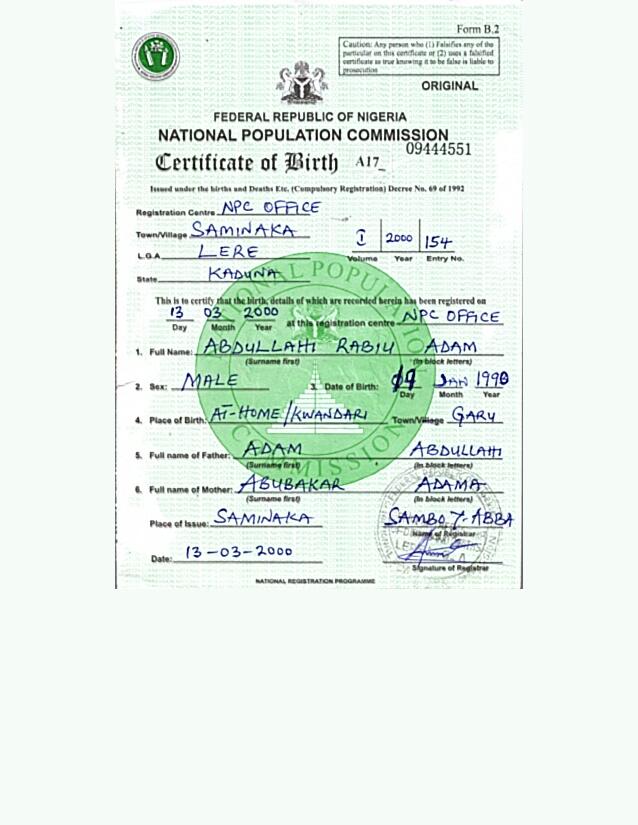 Form B.2
Caution: Any person who (1) Falsifies any of the
particular on this certificate or (2) uses a falsified
certificate as true knowing it to be false is liable to
prosecution
ORIGINAL
FEDERAL REPUBLIC OF NIGERIA
NATIONAL POPULATION COMMISSION
09444551
Certificate of Birth A17_
Issued under the births and Deaths Etc. (Compulsory Registration) Decree No. 69 of 1992
Registration Centre NPC OFFICE
Town/Village SAMINAKA
I 2000 154
L.G.A. LERE
Volume Year Entry No.
State KADUNA
This is to certify that the birth, details of which are recorded herein has been registered on
13 03 2000 at this registration centre NPC OFFICE
Day Month Year
1. Full Name: ABDULLAHI RABIU ADAM
(Surname first) (In block letters)
2. Sex: MALE 3. Date of Birth: JAN
Day Month Year
4. Place of Birth: AT-HOME/KWANDARI Town/Village GARU
5. Full name of Father: ADAM ABDULLAHI
(Surname first) (In block letters)
6. Full name of Mother: ABUBAKAR ADAMA
(Surname first) (In block letters)
Place of Issue: SAMINAKA SAMBO Y. ABBA
Name of Registrar
Date: 13-03-2000
Signature of Registrar
NATIONAL REGISTRATION PROGRAMME
NATIONAL POPULATION COMMISSION